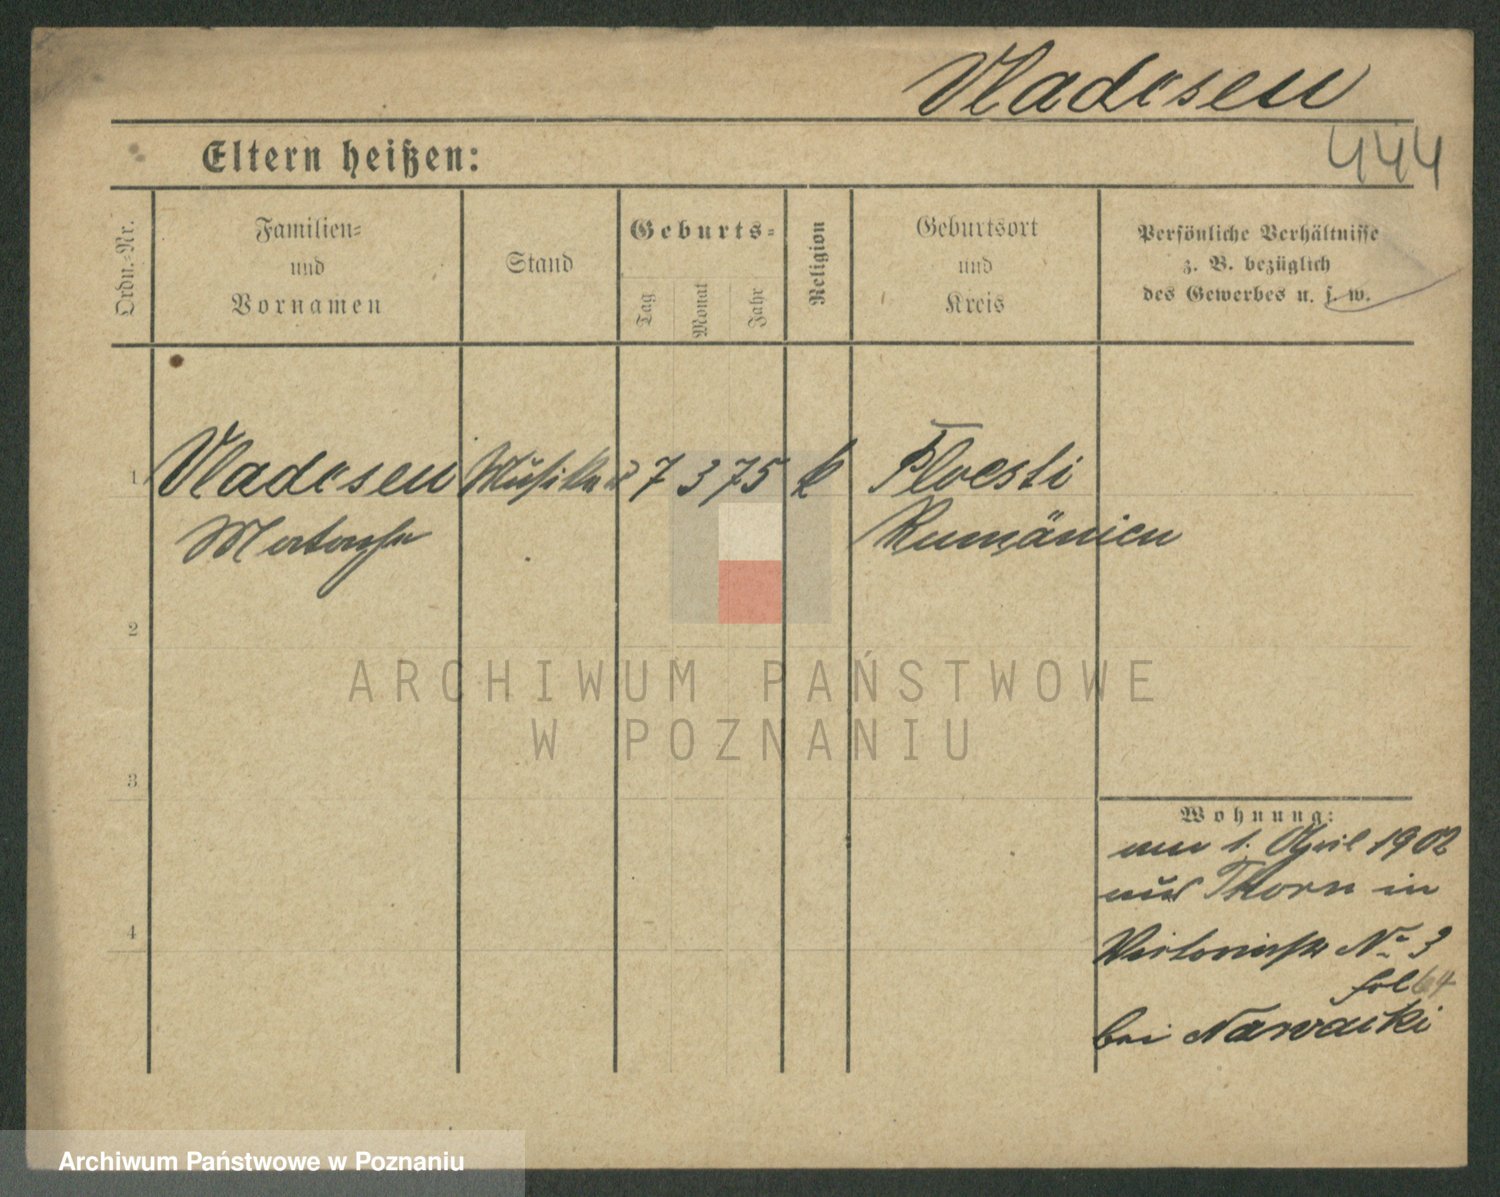 Vladesen
444
Eltern heißen:
Ordn.-Nr.
Familien-
und
Vornamen
Stand
Geburts-
Tag
Monat
Jahr
Religion
Geburtsort
und
Kreis
Persönliche Verhältnisse
z. B. bezüglich
des Gewerbes u. s. w.
1 Vladesen 7 3 75 k Ploesti
Rumänien
2
ARCHIWUM PAŃSTWOWE
W POZNANIU
3
Wohnung:
am 1. April 1902
aus Thorn in
4
No 3
fol 64
bei Nawacki
Archiwum Państwowe w Poznaniu